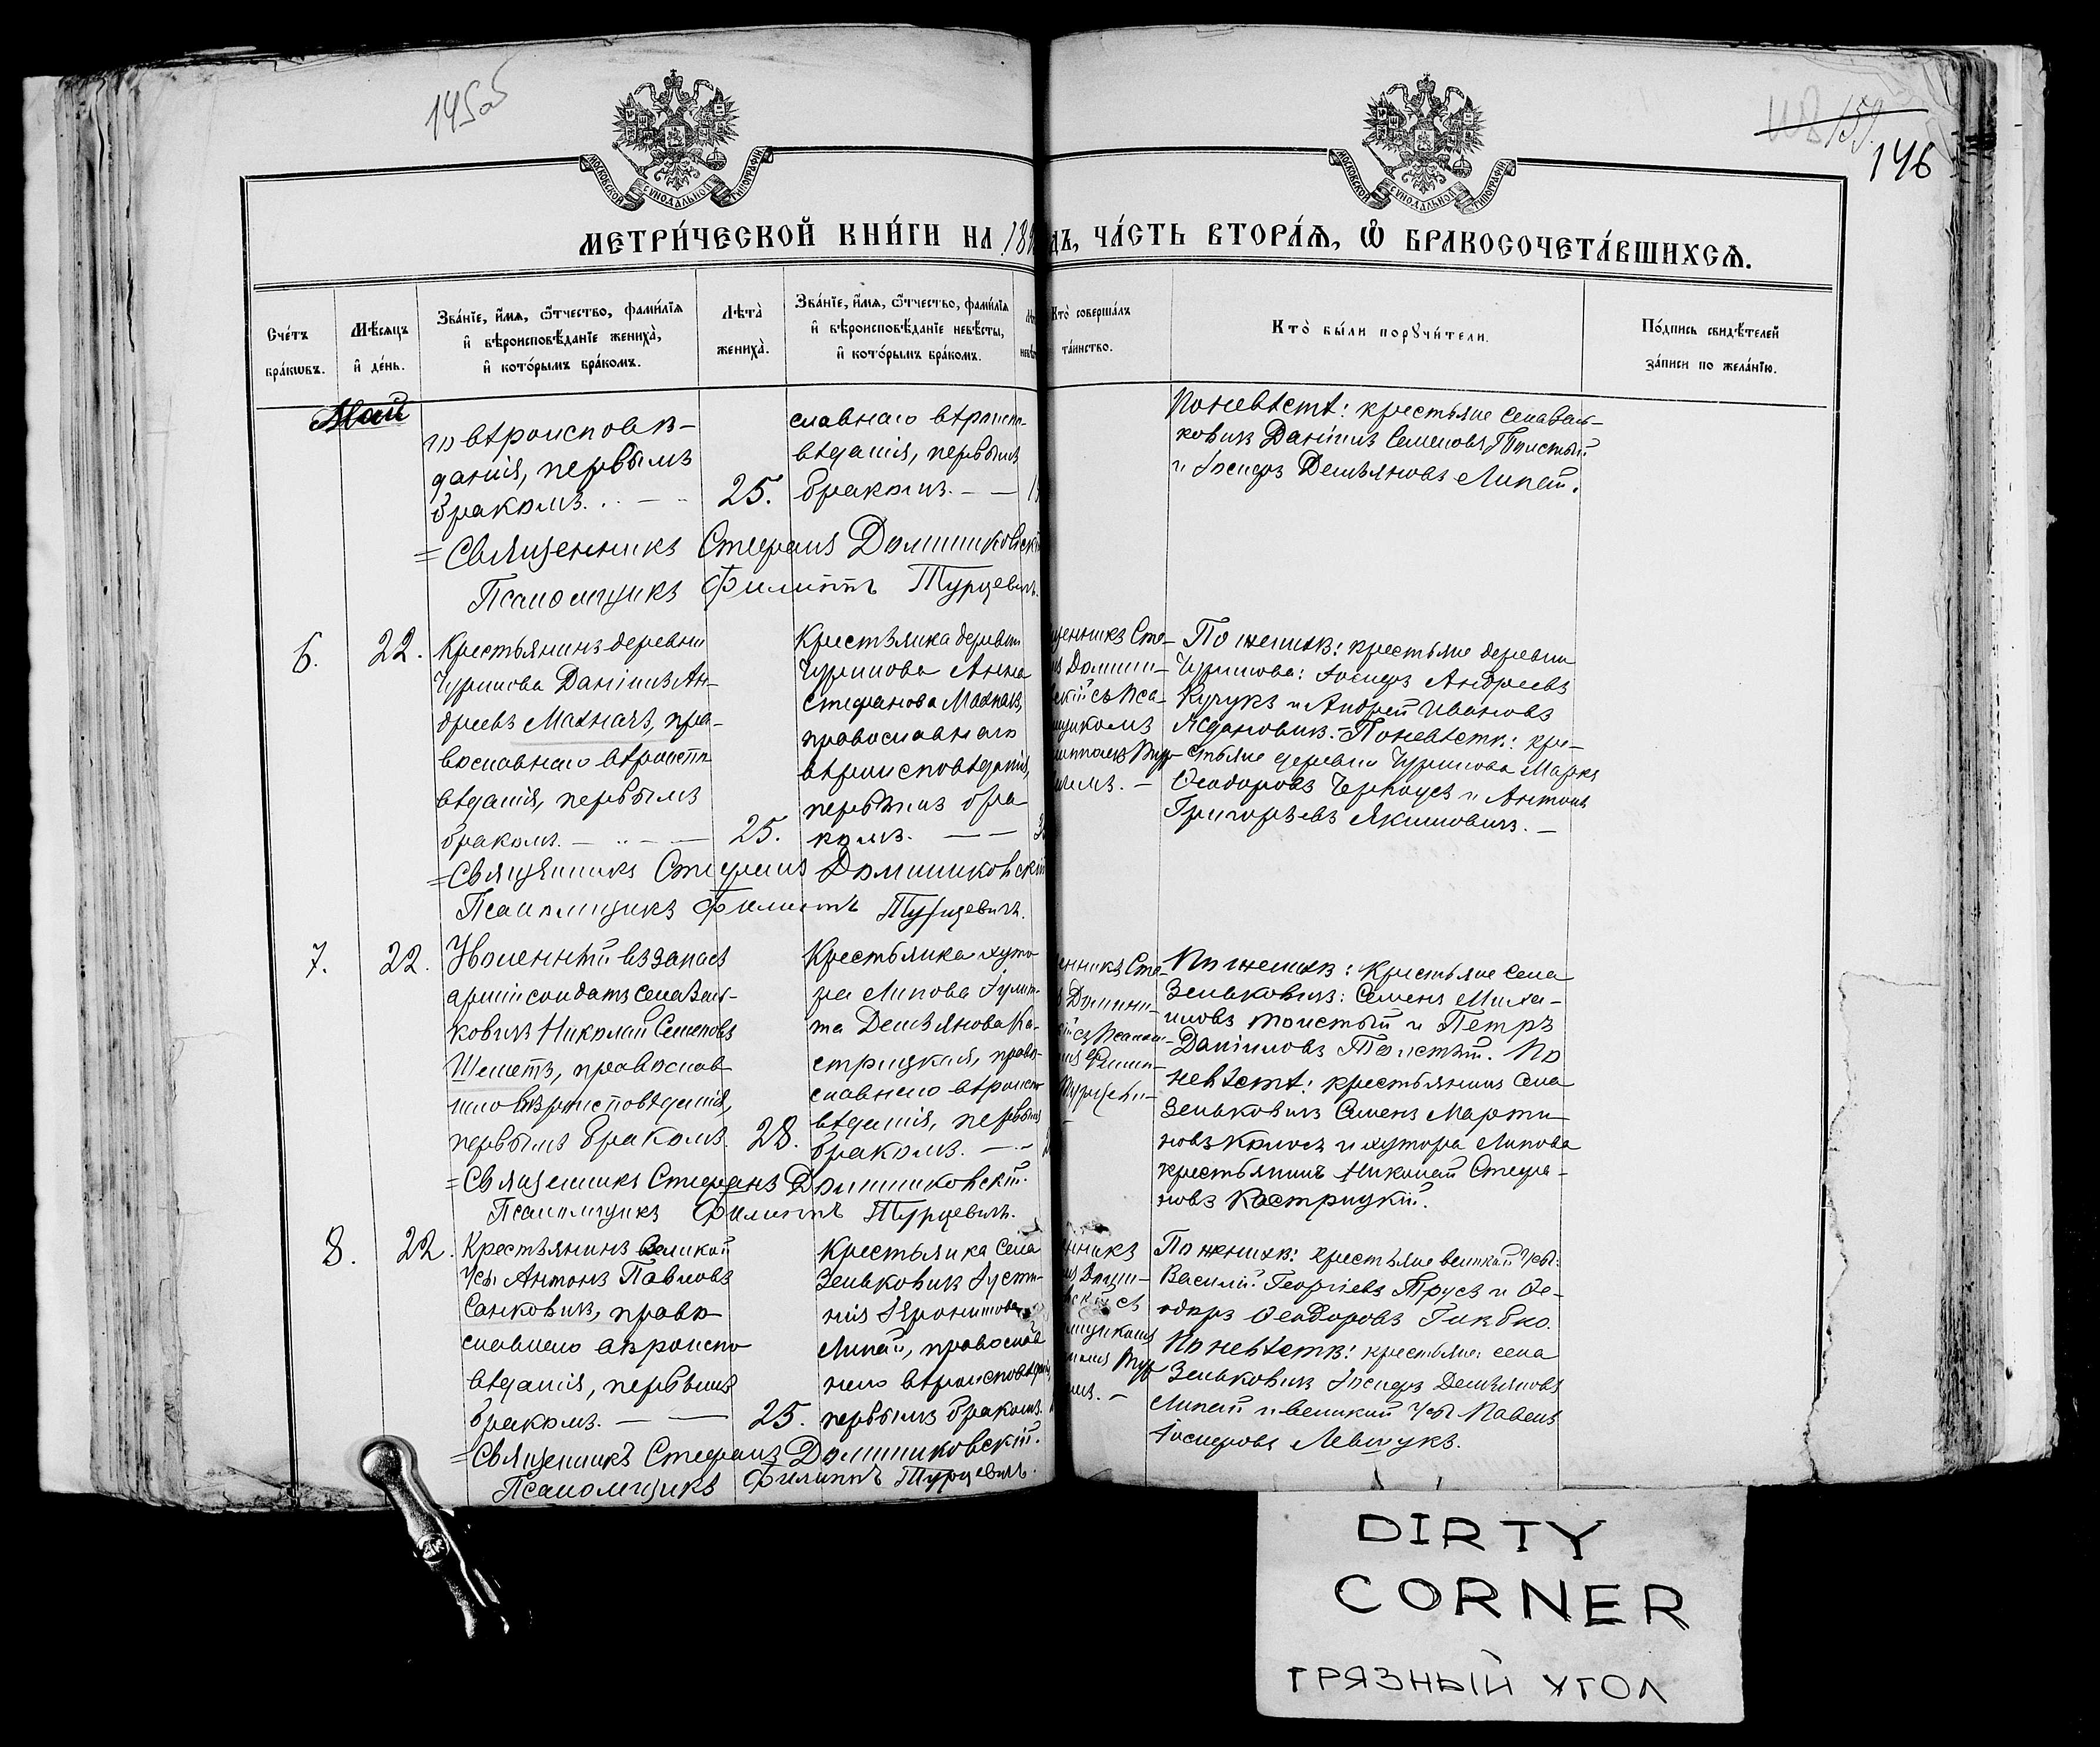 145об
118 151.
146
МОСКОВСКОЙ СѴНОДАЛЬНОЙ ТИПОГРАФІИ
МОСКОВСКОЙ СѴНОДАЛЬНОЙ ТИПОГРАФІИ
МЕТРИ́ЧЕСКОЙ КНИ́ГИ НА 189
дъ, ЧА́СТЬ ВТОРА́Ѧ, Ѿ БРАКОСОЧЕТА́ВШИХСѦ.
Сче́тъ бра́кωвъ.
Мѣ́сяцъ и҆ де́нь.
Зва́нїе, и҆́мѧ, ѻ҆́тчество, фами́лїѧ
и҆ вѣроисповѣ́данїе жениха̀,
и҆ кото́рымъ бра́комъ.
Лѣ́та жениха̀.
Зва́нїе, и҆́мѧ, ѻ҆́тчество, фами́лїѧ
и҆ вѣроисповѣ́данїе невѣ́сты,
и҆ кото́рымъ бра́комъ.
Кто̀ соверша́лъ
та́инство.
Кто̀ бы́ли порꙋчи́тели.
По́дпись свидѣ́телей
за́писи по жела́нїю.
Май
го вѣроисповѣ-
данія, первымъ
бракомъ.
25.
славнаго вѣроиспо-
вѣданія, первымъ
бракомъ. — —
По невѣстѣ: крестьяне села Зень-
ковичъ Даніилъ Семеновъ Толстый
и Іосифъ Демьяновъ Липай.
=Священникъ Стефанъ Доминиковскій
Псаломщикъ Филиппъ Турцевичъ.
6.
22.
Крестьянинъ деревни
Чурилова Даніилъ Ан-
дреевъ Махначъ, пра-
вославнаго вѣроиспо
вѣданія, первымъ
бракомъ. —
25.
Крестьянка деревни
Чурилова Анна
Стефанова Махначъ,
православнаго
вѣроисповѣданія,
первымъ бра
комъ. — —
щенникъ Сте-
ъ Домини-
скій съ Пса-
щикомъ
иппомъ Тур-
чемъ. —
По женихѣ: крестьяне деревни
Чурилова: Іосифъ Андреевъ
Кучукъ и Андрей Ивановъ
Ждановичъ. - По невѣстѣ: кре-
стьяне деревни Чурилова Маркъ
Ѳеодоровъ Черноусъ и Антонъ
Григорьевъ Якимовичъ. —
=Священникъ Стефанъ Доминиковскій
Псаломщикъ Филиппъ Турцевичъ.
7.
22.
Уволенный въ запасъ
арміи солдатъ села Зень-
ковичъ Николай Семеновъ
Шеметъ, православ
наго вѣроисповѣданія,
первымъ бракомъ.
28.
Крестьянка хуто
ра Липова Іулит-
та Демьянова Ка-
стрицкая, право-
славнаго вѣроиспо
вѣданія, первымъ
бракомъ. —
енникъ Сте-
Домини-
ій съ Псалом-
мъ Филип-
Турцеви-
По женихѣ: Крестьяне села
Зеньковичъ: Семенъ Миха-
иловъ Толстый и Петръ
Даніиловъ Толстый. По
невѣстѣ: крестьянинъ села
Зеньковичъ Семенъ Марти-
новъ Колосъ и хутора Липова
крестьянинъ Николай Стефа-
новъ Кастрицкій.
=Священникъ Стефанъ Доминиковскій.
Псаломщикъ Филиппъ Турцевичъ.
8.
22.
Крестьянинъ Великой
Усы Антонъ Павловъ
Санковичъ, право
славнаго вѣроиспо
вѣданія, первымъ
бракомъ. — —
25.
Крестьянка села
Зеньковичъ Іусти-
нія
Липай, православ
наго вѣроисповѣданія,
первымъ бракомъ.
нникъ
ъ Доми-
вскій съ
мщикомъ
Тур
мъ. —
По женихѣ: крестьяне великой Усы:
Василій Георгіевъ Трусъ и Ѳе-
одоръ Ѳеодоровъ
По невѣстѣ: крестьяне: села
Зеньковичъ Іосифъ Демьяновъ
Липай и великой Усы Павелъ
Іосифовъ Левшукъ.
=Священникъ Стефанъ Доминиковскій.
Псаломщикъ Филиппъ Турцевичъ.
DIRTY
CORNER
ГРЯЗНЫЙ УГОЛ